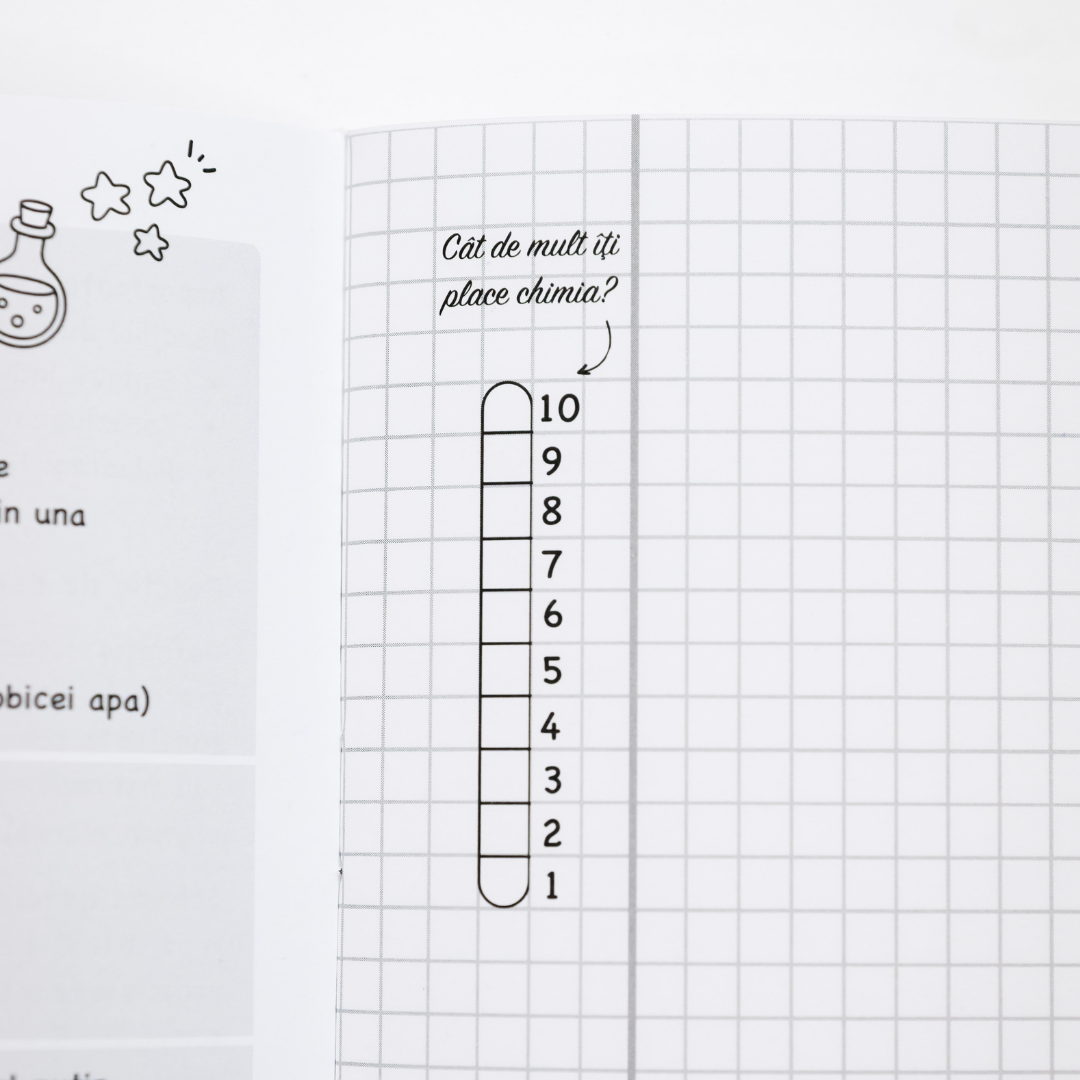 e
in una
obicei apa)
Cât de mult îți
place chimia?
10
9
8
7
6
5
4
3
2
1